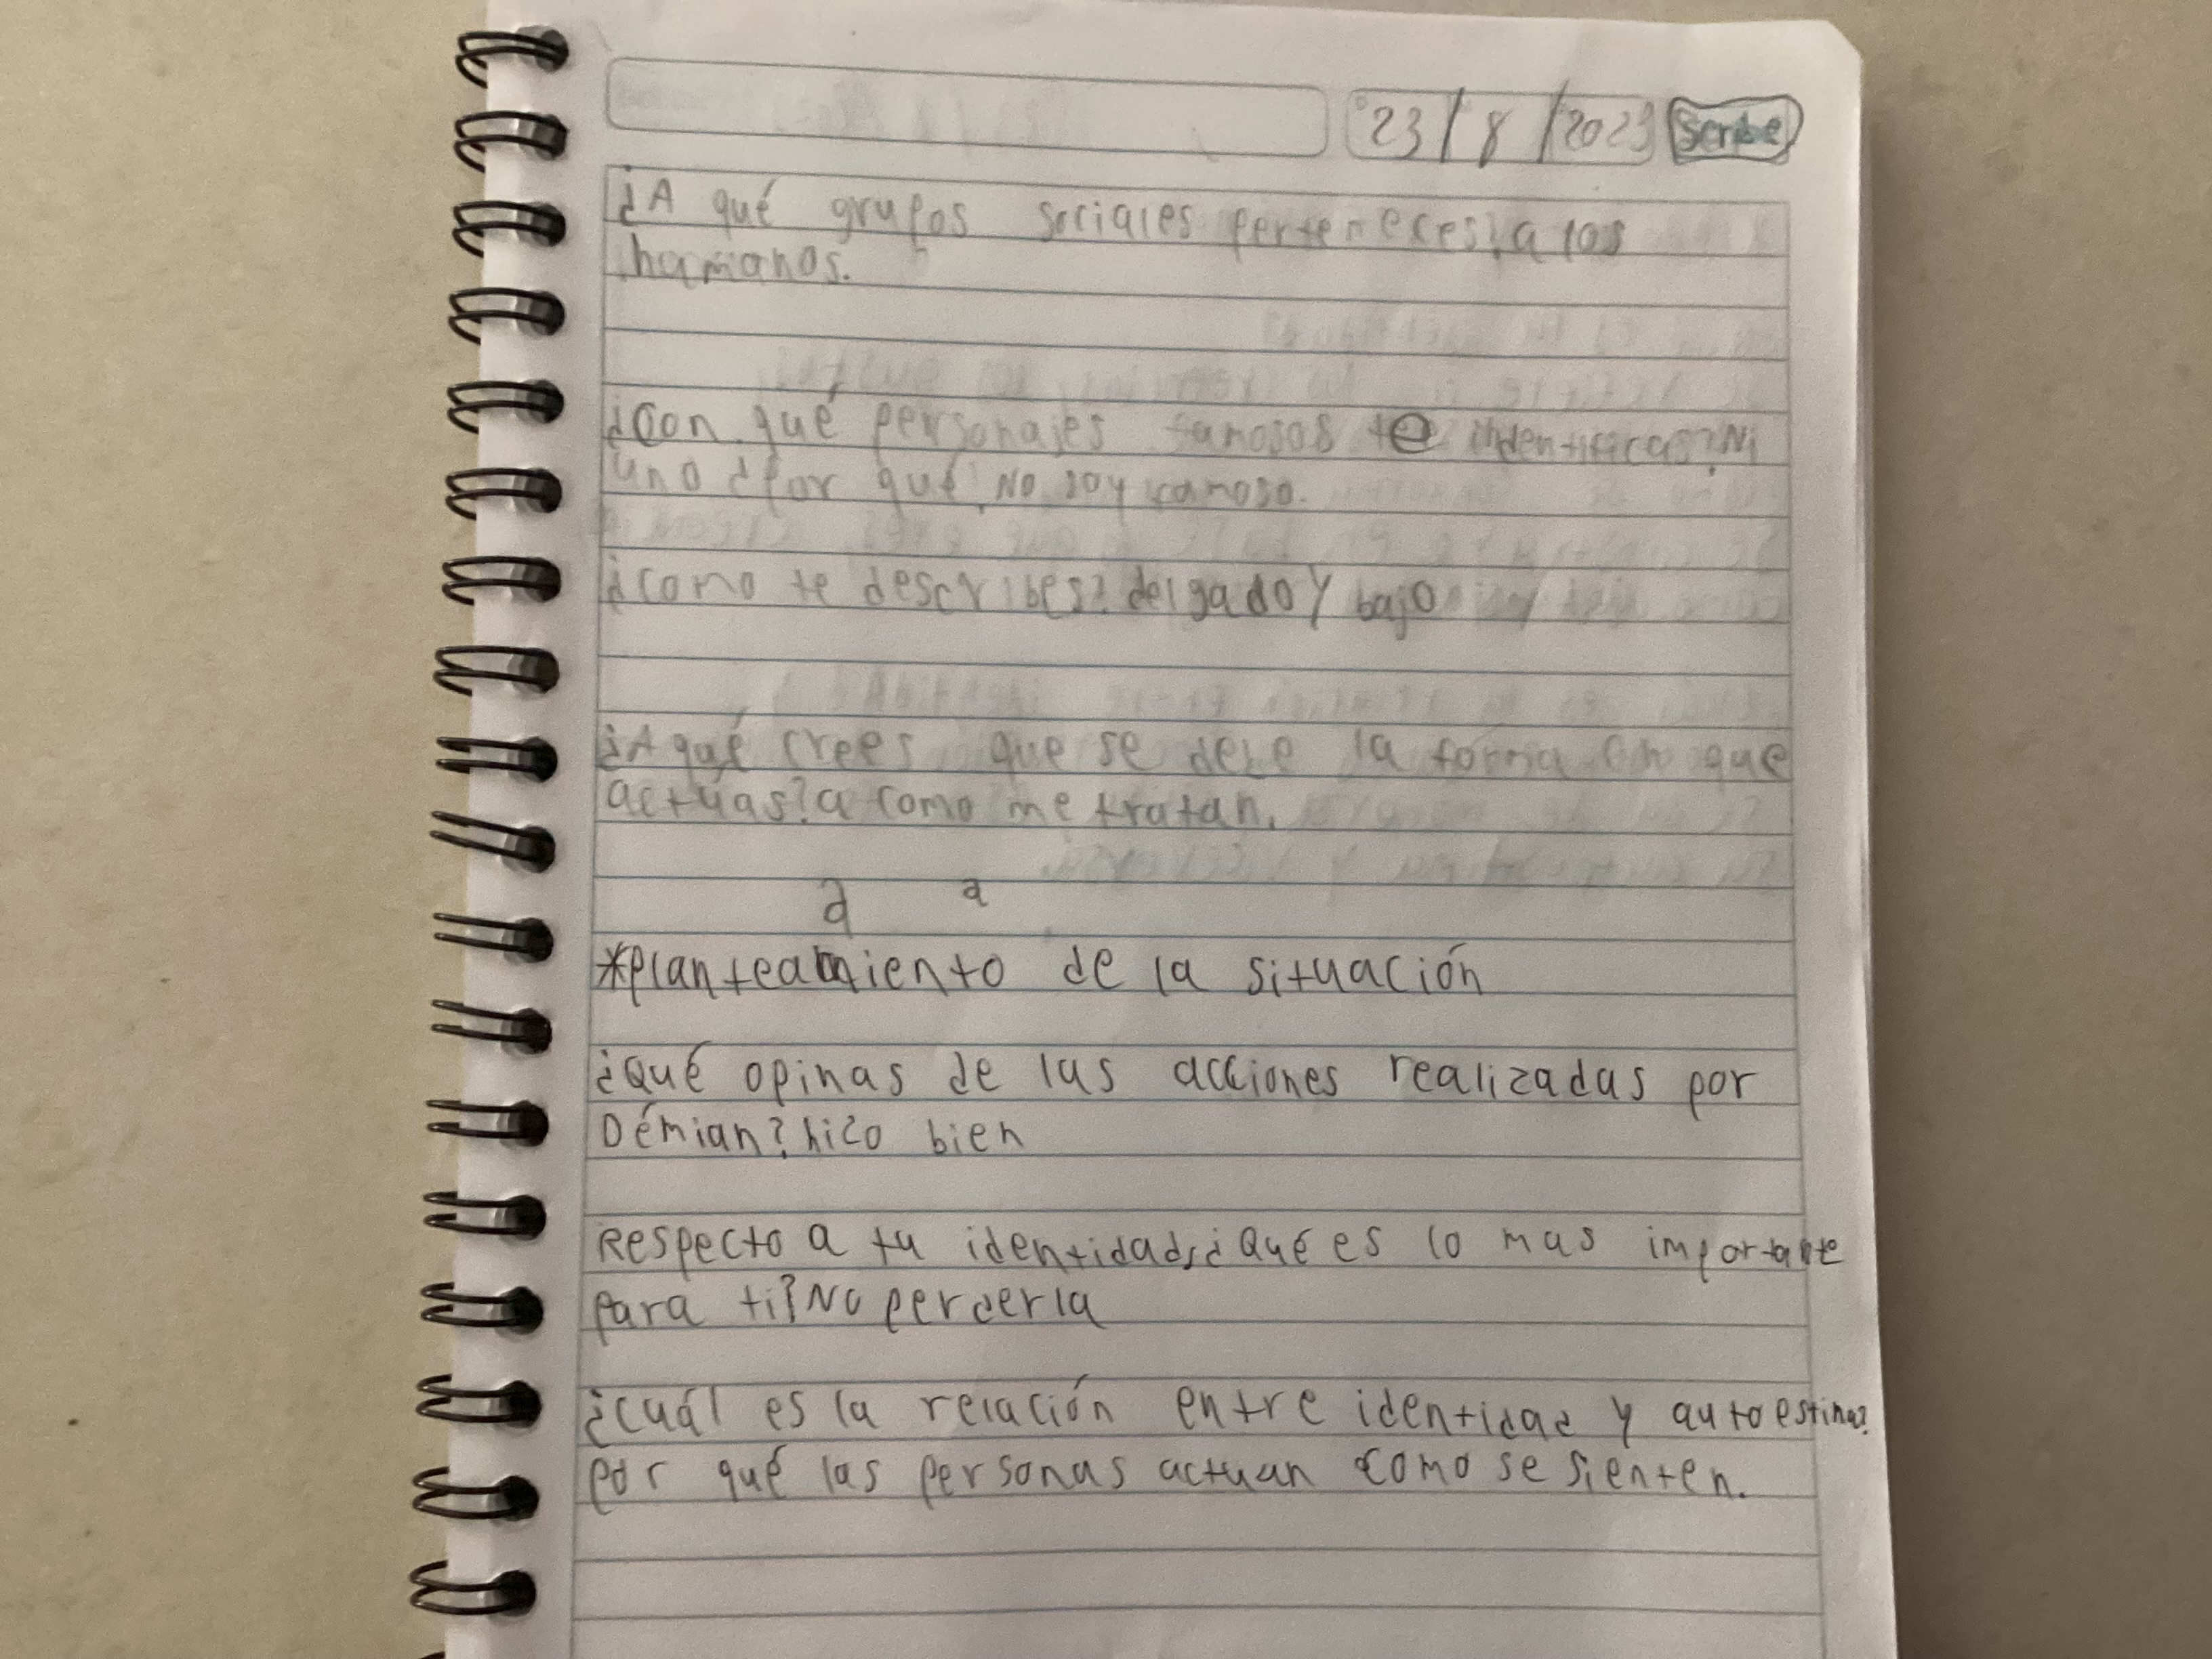 23/8/2023 Scribe
¿A qué grupos sociales perteneces? a los
humanos.
¿Con qué personajes famosos te indentificas? Ni
uno ¿por qué? No soy famoso.
¿como te describes? delgado y bajo
¿A qué crees que se debe la forma en que
actuas? a como me tratan.
a a
*planteamiento de la situación
¿Qué opinas de las acciones realizadas por
Démian? hizo bien
Respecto a tu identidad, ¿Qué es lo mas importante
para ti? No perderla
¿cuál es la relación entre identidad y autoestima?
por qué las personas actuan como se sienten.